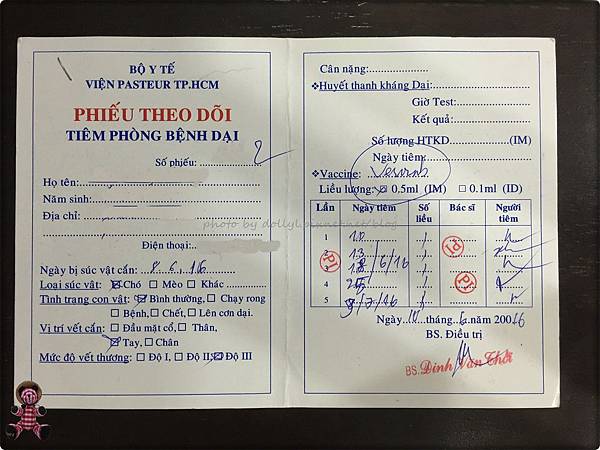 BỘ Y TẾ
VIỆN PASTEUR TP.HCM
PHIẾU THEO DÕI
TIÊM PHÒNG BỆNH DẠI
Số phiếu: ............
Họ tên:
Năm sinh:
Địa chỉ:
Điện thoại:
Ngày bị súc vật cắn: 8.6.16
Loại súc vật: ☒Chó ☐ Mèo ☐ Khác
Tình trạng con vật: ☒ Bình thường, ☐ Chạy rong
☐ Bệnh, ☐ Chết, ☐ Lên cơn dại.
Vị trí vết cắn: ☐ Đầu mặt cổ, ☐ Thân,
☒ Tay, ☐ Chân
Mức độ vết thương: ☐ Độ I, ☐ Độ II, ☒ Độ III
Cân nặng:
❖Huyết thanh kháng Dại:
Giờ Test:
Kết quả:
Số lượng HTKD (IM)
Ngày tiêm:
❖Vaccine: Verorab
Liều lượng: ☒ 0.5ml (IM) ☐ 0.1ml (ID)
Lần Ngày tiêm Số liều Bác sĩ Người tiêm
1 10 1
2 13 1
3 18/6/16 1
4 1
5 /7/16 1
P1
P1
Ngày 10 tháng 6 năm 20016
BS. Điều trị
BS. Đinh Văn Thới
photo by dollyli.pixnet.net/blog